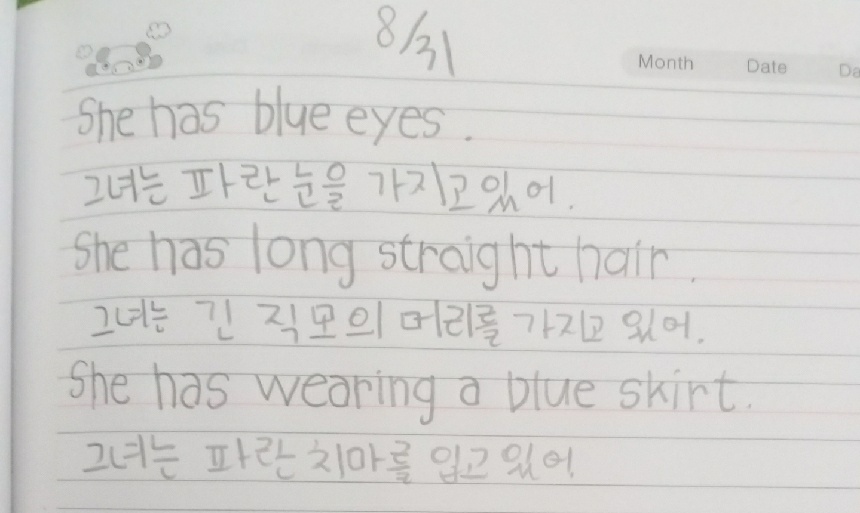 8/31
Month Date Da
She has blue eyes.
그녀는 파란 눈을 가지고있어.
She has long straight hair.
그녀는 긴 직모의 머리를 가지고 있어.
She has wearing a blue skirt.
그녀는 파란 치마를 입고 있어